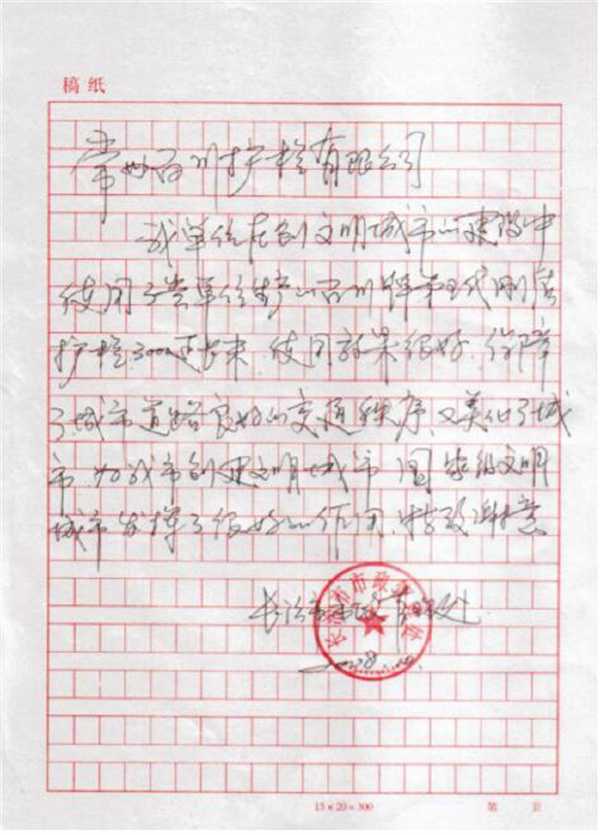 稿纸
常州百川护栏有限公司
我单位在创文明城市的建设中
使用了贵单位生产的百川牌第五代刚质
护栏3000延长米 使用效果很好、保障
了城市道路良好的交通秩序、又美化了城
市 为我市创建文明城市 国家级文明
城市 发挥了很好的作用、特致谢意
长治市
15×20=300
第 页